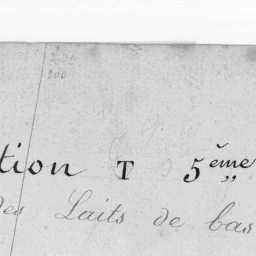 200
tion T 5ème
des Laits de bas